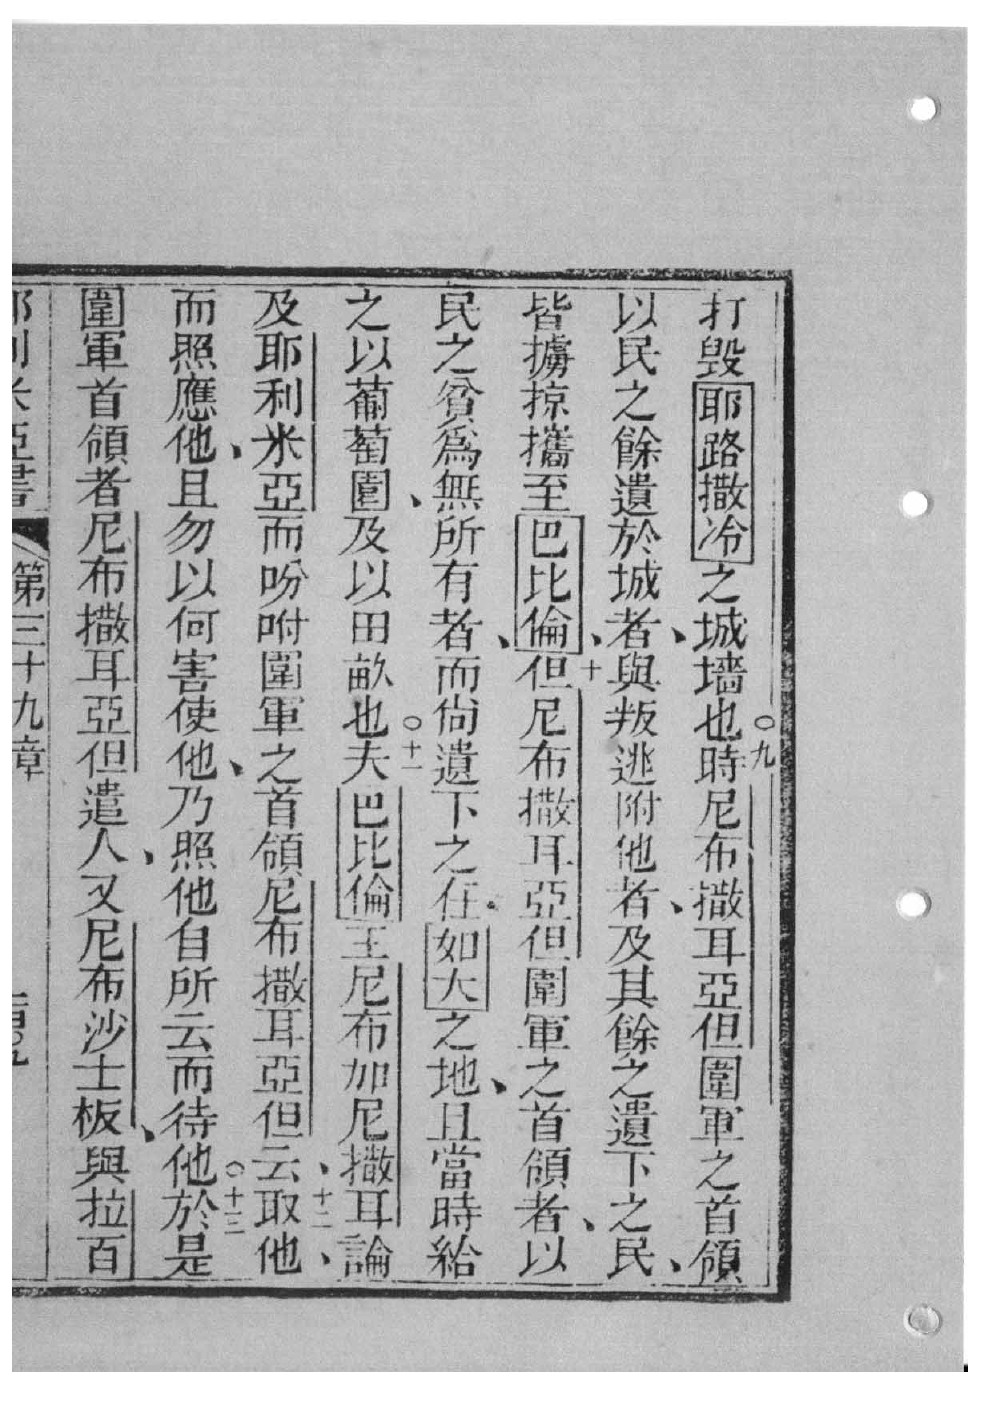 打毁耶路撒冷之城墻也○九時尼布撒耳亞但圍軍之首領
以民之餘遺於城者、與叛逃附他者、及其餘之遺下之民、
皆擄掠攜至巴比倫、十但尼布撒耳亞但圍軍之首領者、以
民之貧爲無所有者、而尙遺下之在如大之地、且當時給
之以葡萄園、及以田畝也○十一夫巴比倫王尼布加尼撒耳論
及耶利米亞而吩咐圍軍之首領尼布撒耳亞但云、十二取他、
而照應他、且勿以何害使他、乃照他自所云而待他○十三於是
圍軍首領者尼布撒耳亞但遣人、又尼布沙士板、與拉百
耶利米亞書 第三十九章